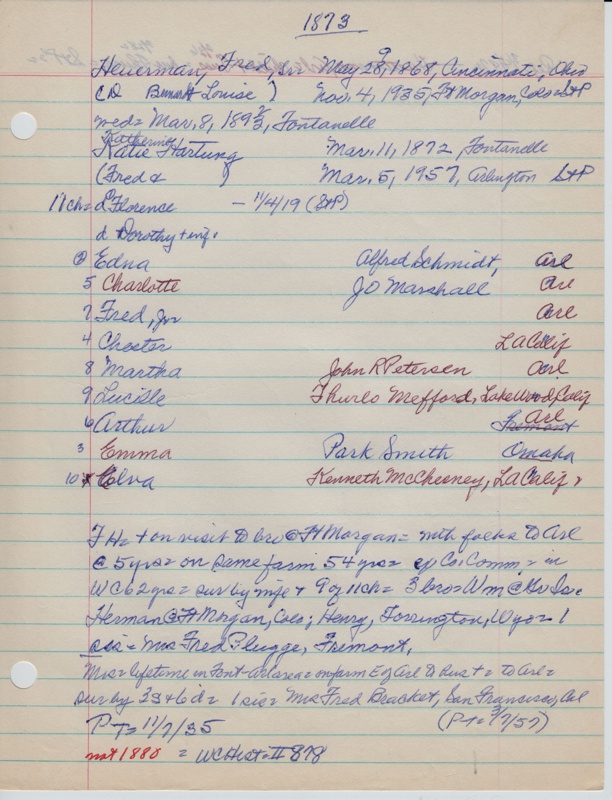 1873
9
Heuerman, Fred, Sr May 28, 1868, Cincinnati, Ohio
(D Louise) Nov. 4, 1935, Ft Morgan, Colo = StP
wed = Mar. 8, 1893, Fontanelle
Katherine
Katie Hartung Mar. 11, 1872, Fontanelle
(Fred & ) Mar. 5, 1957, Arlington StP
11 ch = d Florence - 1/4/19 (StP)
d Dorothy + inf.
② Edna Alfred Schmidt, Arl
5 Charlotte JO Marshall Arl
7 Fred, Jr Arl
4 Chester LA Calif
8 Martha John R Petersen Arl
9 Lucille Thurlo Mefford, Lakewood, Calif
Arl
6 Arthur Fremont
3 Emma Park Smith Omaha
10 Elva Kenneth McChesney, LA Calif
F He + on visit to bro @ Ft Morgan = with folks to Arl
@ 5 yrs = on same farm 54 yrs = Co Comm = in
WC 62 yrs = sur by wife + 9 of 11 ch = 3 bro = Wm @
Herman @ Ft Morgan, Colo; Henry, Torrington, Wyo = 1
sis = Mrs Fred Plugge, Fremont,
Mrs = lifetime in Font-Arl area = on farm E of Arl to = to Arl =
sur by 3s + 6d = 1 sis = Mrs Fred Bracket, San Francisco, Cal
PT = 11/7/35 (PT = 3/7/57)
not 1880 = WC Hist = II 878